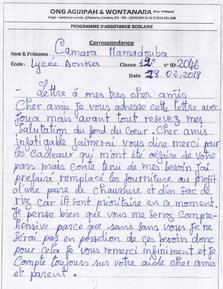 ONG AGUIPAH & WONTANARA
PROGRAMME D'ASSISTANCE SCOLAIRE
Correspondance
Nom & Prénoms : Camara Mamadouba
École : Lycée Bonfi Classe 12e N° ID 2046
Date 28.02.2018
Lettre à mes bas cher amis
Cher amis Je vous adresse cette lettre avec
Joua mais avant tout recevez mes
Salutation du fond du Coeur. Cher amis
infatigable J'aimerai vous dire merci pour
les cadeaux qui m'ont été de votre
pas mais Compte tenu de mes besoin J'ai
préfairé remplacé les fourniture au profit
d'une paire de chaussure et d'un Sac de
riz Car ils sont prioritaire en ce moment.
Je pense bien que vous me serez Compre-
hensive parce que sans vous Je ne
serai pas en possetion de ces besoin donc
pour cela Je vous remerci infiniment et Je
Compte toujours sur votre aide cher amis
et parent.